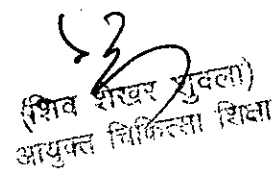 (शिव शेखर शुक्ला)
आयुक्त चिकित्सा शिक्षा